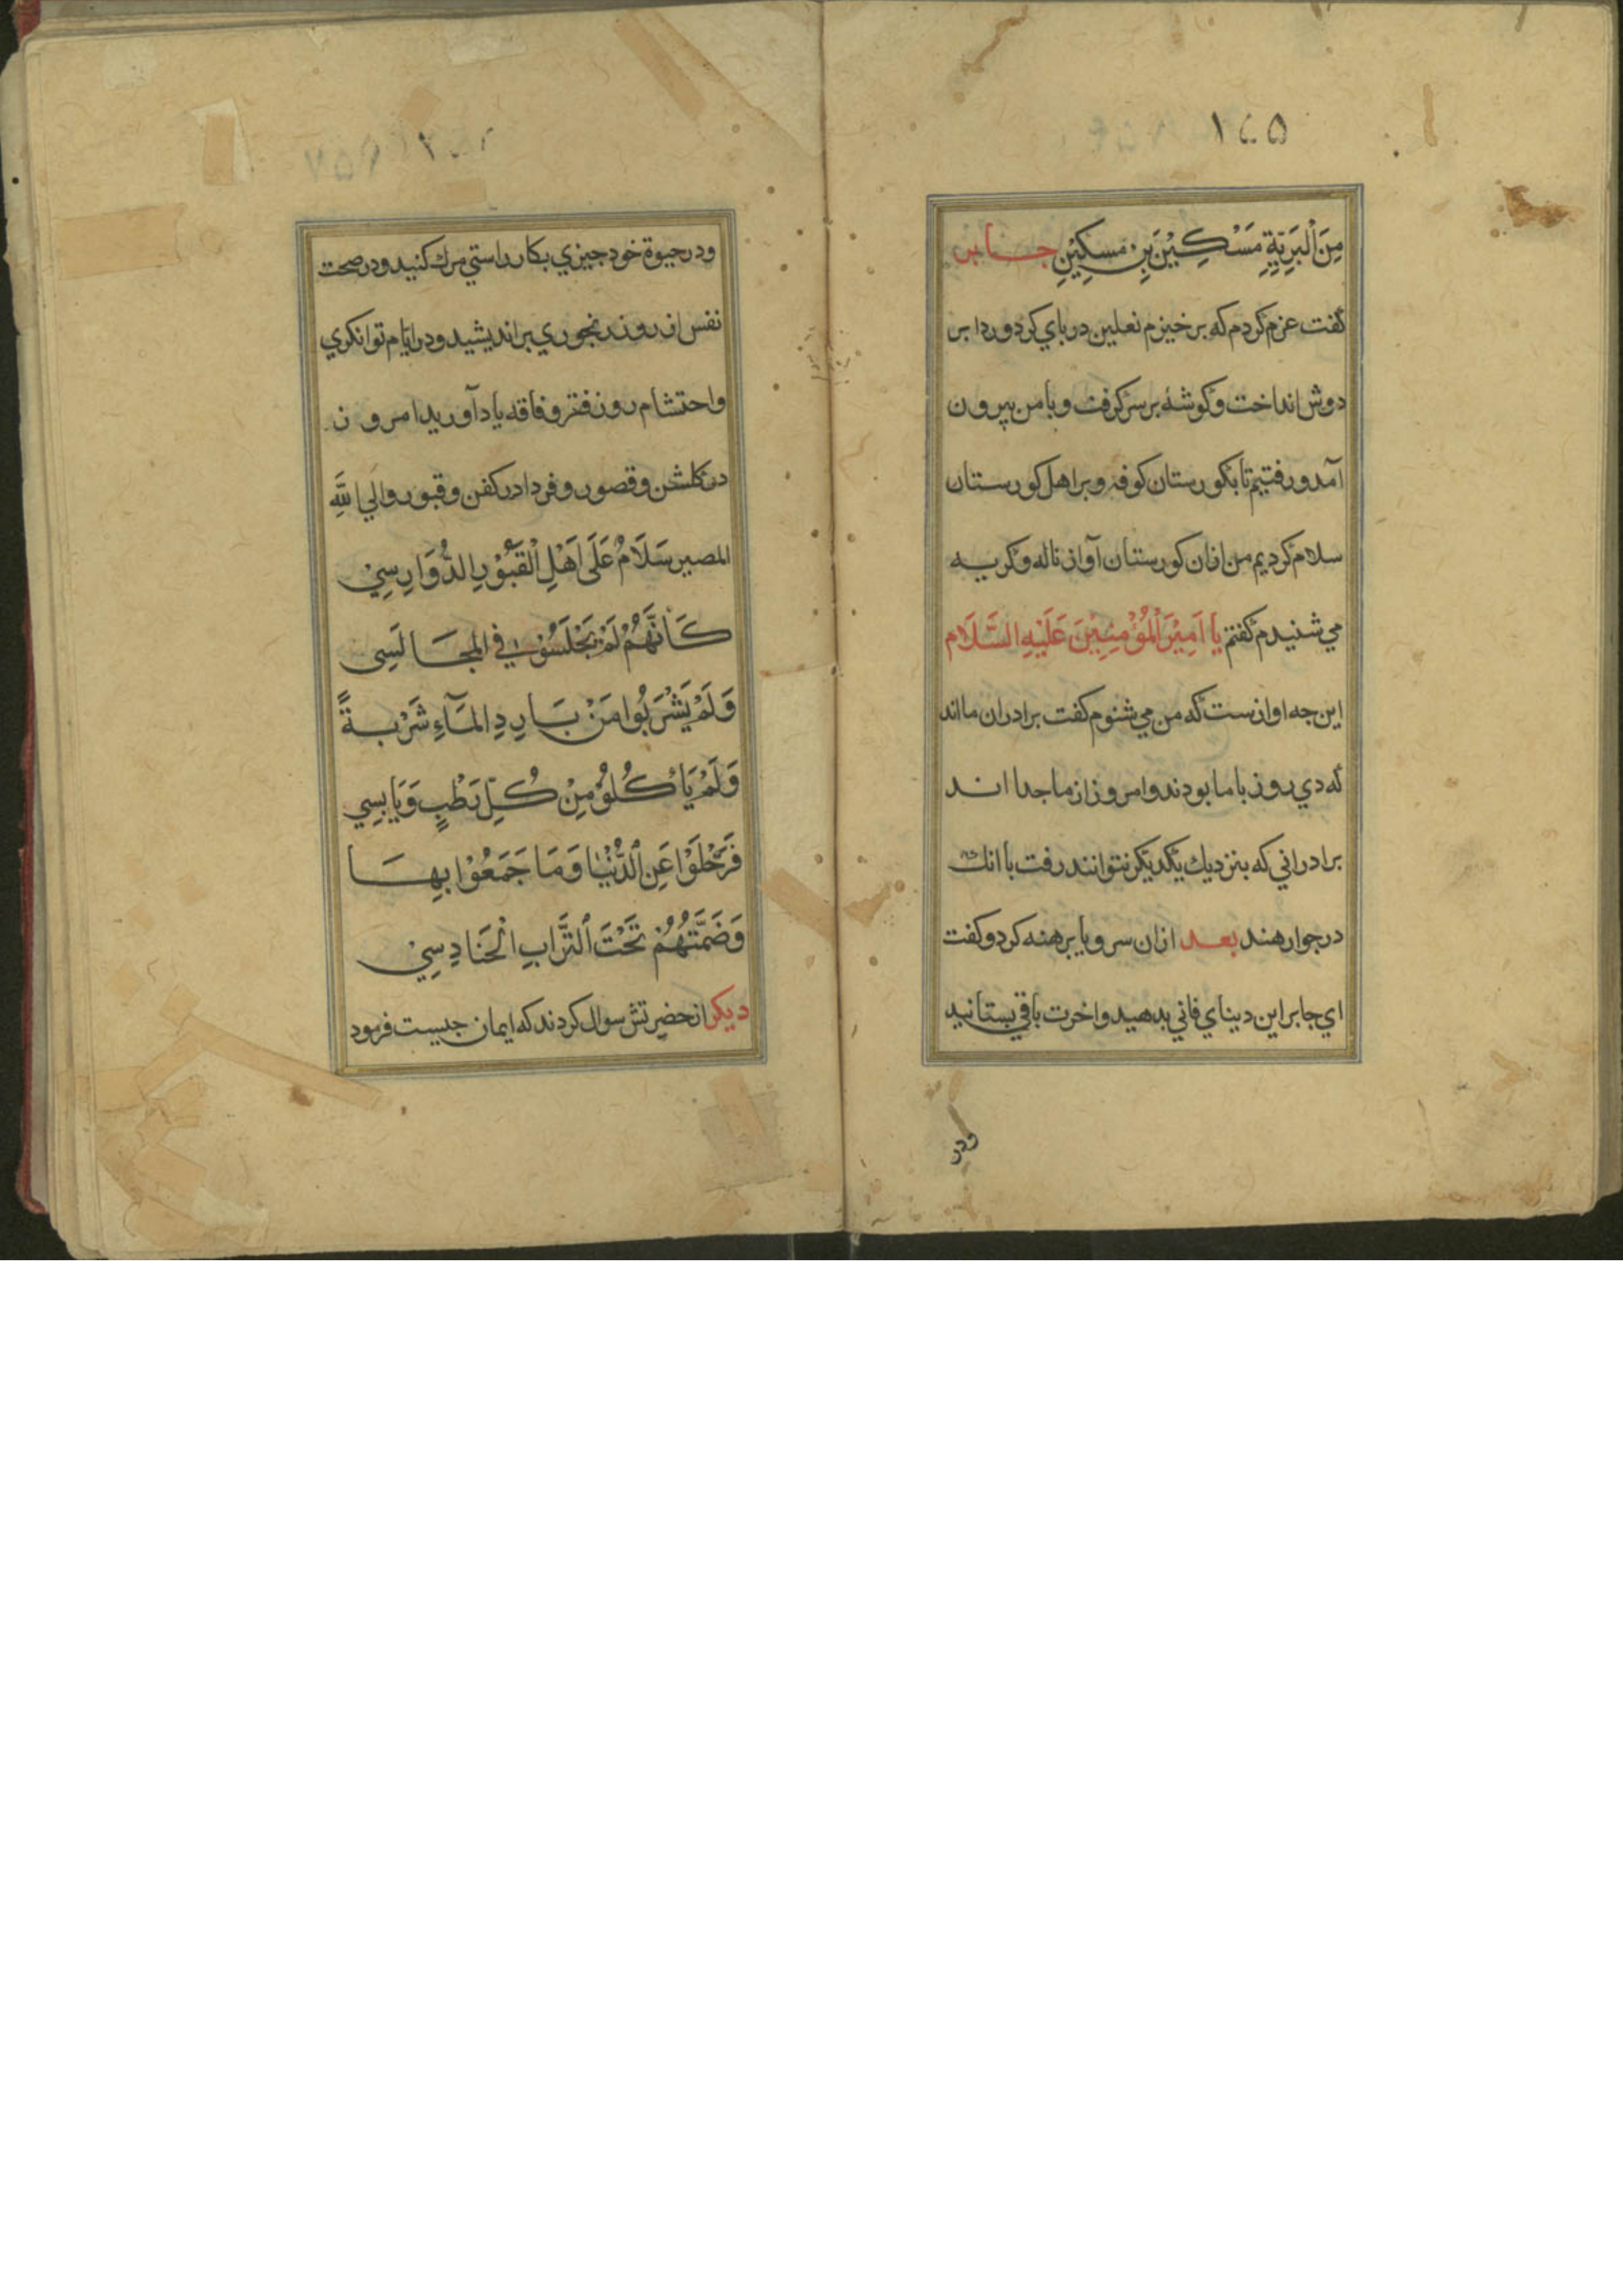 ۱۲۵
مِنَ الْبَرِيَّةِ مَسْكِيْنَ بِنِ مَسكِيْنِ جابر
گفت عزم کردم که برخیزم نعلین در بای کرد و ردا بر
دوش انداخت و کوشهٔ بر سر کرفت و با من بیرون
آمد و رفتیم تا بکورستان کوفه و بر اهل کورستان
سلام کردیم من ازان کورستان آواز ناله و کریه
می شنیدم کفتم یا اَمِیْرَ الْمُؤْمِنِیْنَ عَلَیْهِ السَّلَام
این جه اوازست که من می شنوم کفت برادران ما اند
که دی روز با ما بودند و امروز از ما جدا اند
برادرانی که بنزدیك یکدیکر نتوانند رفت با انك
در جوار هند بعد ازان سر و پا برهنه کرد و کفت
ای جابر این دینای فانی بدهید و اخرت باقی بستانید
ودر
ودر حیوة خود جیزی بکار راستی مرك کنید ودر صحت
نفس از روز رنجوری براندیشید ودر ایام توانکری
واحتشام روز فقر و فاقه یاد آورید امروز
در کلشن وقصور و فردا در کفن و قبور والی الله
المصیر سَلَامُ عَلَی اَهْلِ الْقُبُوْرِ الدُّوَارِسِیْ
کَاَنَّهُمْ لَمْ یَجْلَسُوْا فِي المجَالَسِی
وَلَمْ یَشْرَبُوا مَنْ بَارِدِ المَآءِ شَرْبةً
وَلَمْ یَاْکُلُوْ مِنْ کُلِّ رَطْبٍ وَیَابِسِي
فَرَحْلَوْا عَنِ الدُّنْیَا وَمَا جَمَعُوْا بِهَا
وَضَمَّتهُمْ تَحْتَ التُّرَابِ الْحَنَادِسِيْ
دیکر از حضرتش سوال کردند که ایمان جیست فرمود